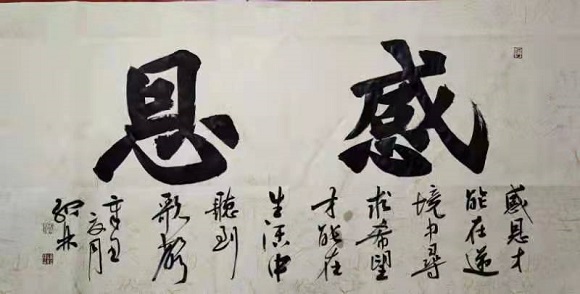 感恩
感恩才
能在逆
境中尋
求希望
才能在
生活中
聽到
歌聲
辛丑
夏月